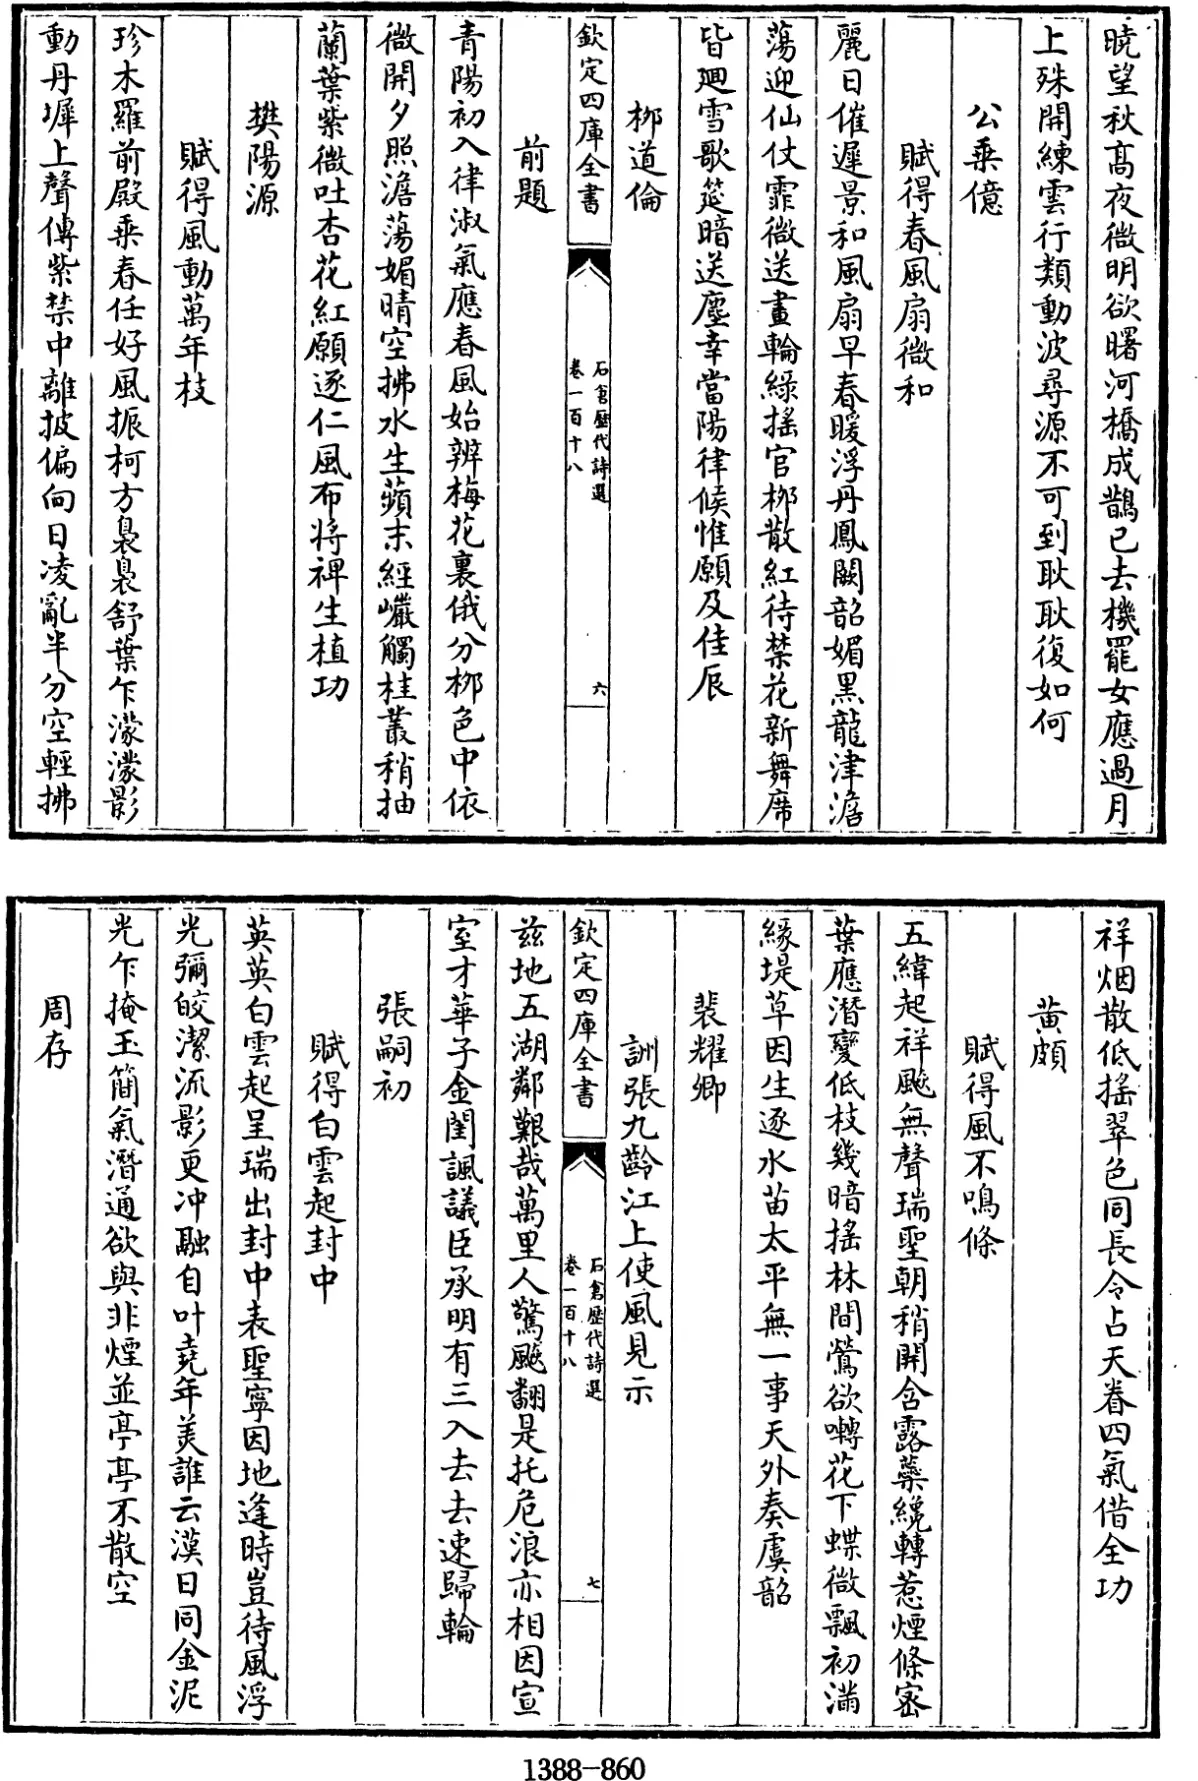 曉望秋高夜微明欲曙河橋成鵲已去機罷女應過月
上殊開練雲行類動波尋源不可到耿耿復如何
公乗億
賦得春風扇微和
麗日催遲景和風扇早春暖浮丹鳳闕韶媚黒龍津澹
蕩迎仙仗霏微送畫輪緑搖官柳散紅待禁花新舞席
皆廻雪歌筵暗送塵幸當陽律候惟願及佳辰
柳道倫
前題
青陽初入律淑氣應春風始辨梅花裏俄分柳色中依
微開夕照澹蕩媚晴空拂水生蘋末經巘觸桂叢稍抽
蘭葉紫微吐杏花紅願逐仁風布將裨生植功
樊陽源
賦得風動萬年枝
珍木羅前殿乗春任好風振柯方裊裊舒葉乍濛濛影
動丹墀上聲傳紫禁中離披偏向日凌亂半分空輕拂
欽定四庫全書
石倉歴代詩選
卷一百十八
六
祥烟散低搖翠色同長令占天眷四氣借全功
黄頗
賦得風不鳴條
五緯起祥飈無聲瑞聖朝稍開含露蘂纔轉惹煙條宻
葉應潛變低枝幾暗搖林間鶯欲囀花下蝶微飄初滿
緣堤草因生逐水苗太平無一事天外奏虞韶
裴耀卿
詶張九齡江上使風見示
兹地五湖鄰艱哉萬里人驚飈翻是托危浪亦相因宣
室才華子金閨諷議臣承明有三入去去速歸輪
張嗣初
賦得白雲起封中
英英白雲起呈瑞出封中表聖寧因地逢時豈待風浮
光彌皎潔流影更冲融自叶堯年美誰云漢日同金泥
光乍掩玉簡氣潛通欲與非煙並亭亭不散空
周存
欽定四庫全書
石倉歴代詩選
卷一百十八
七
1388-860